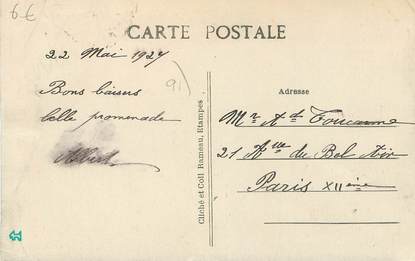 6€
CARTE POSTALE
22 Mai 1927
91)
Bons baisers
belle promenade
Albert
Cliché et Coll Rameau, Etampes
Adresse
Mr Ad
21 Aue du Bel Air
Paris XIIème